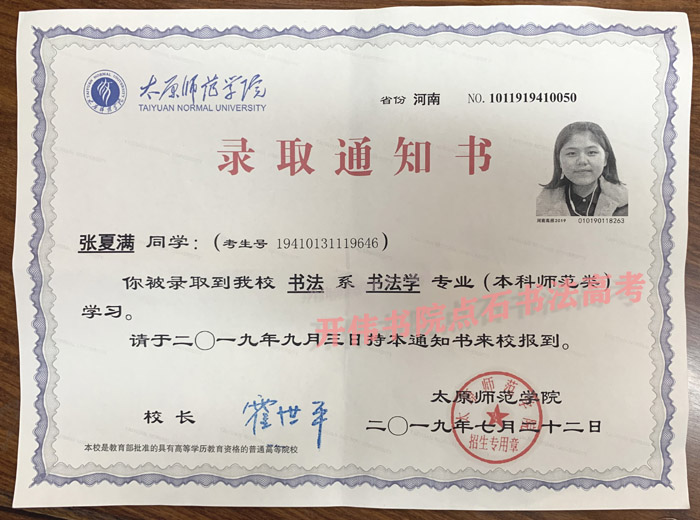 太原师范学院
TAIYUAN NORMAL UNIVERSITY
省份 河南 NO. 1011919410050
录取通知书
河南高招2019 010190118263
张夏满 同学：(考生号 19410131119646)
你被录取到我校 书法 系 书法学 专业(本科师范类)
学习。
开伟书院点石书法高考
请于二〇一九年九月三日持本通知书来校报到。
太原师范学院
校长 霍世平
二〇一九年七月二十二日
太原师范学院
招生专用章
本校是教育部批准的具有高等学历教育资格的普通高等院校